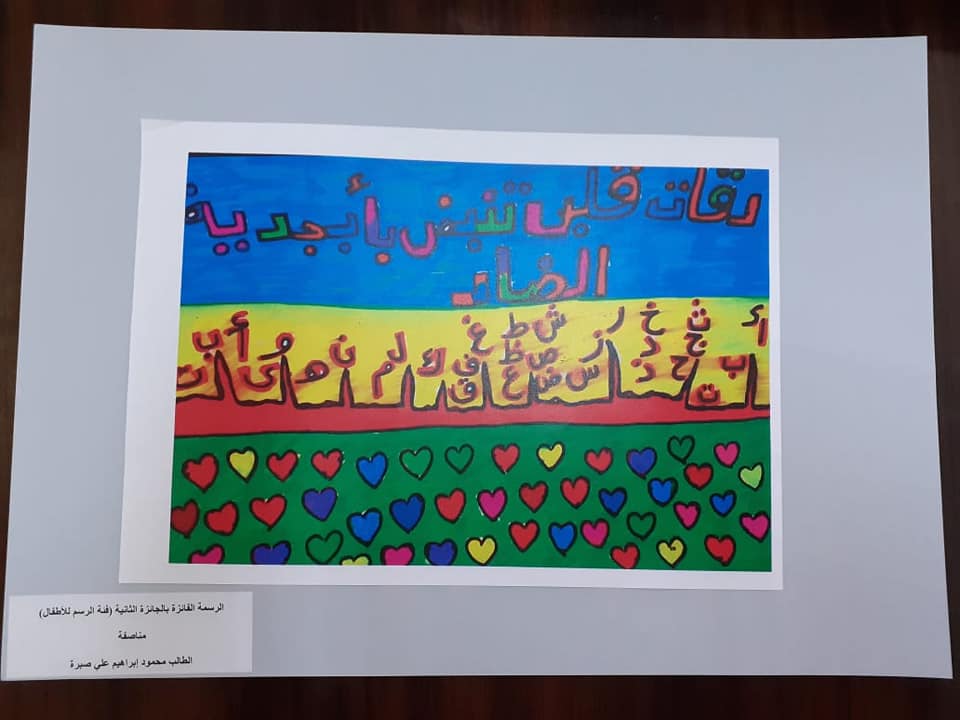 دقات قلبي تنبض بأبجدية
الضاد
أ ث خ ر ش ط غ
ب ج د ز ص ظ ف ك ل ن و أ ب
ت ح ذ س ض ع ق م ه ي ت
الرسمة الفائزة بالجائزة الثانية (فئة الرسم للأطفال)
مناصفة
الطالب محمود إبراهيم علي صبرة